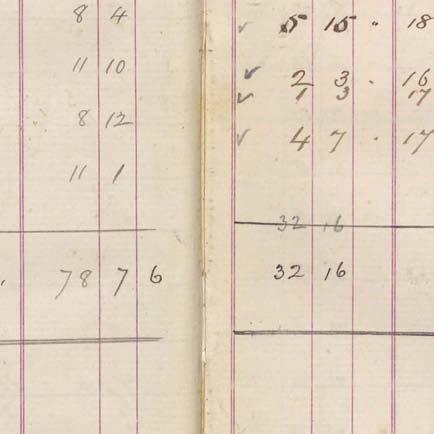 8 4
11 10
8 12
11 1
78 7 6
✓ 5 15 " 18
✓ 2 3 . 16
✓ 1 3 17
✓ 4 7 . 17
32 16
32 16